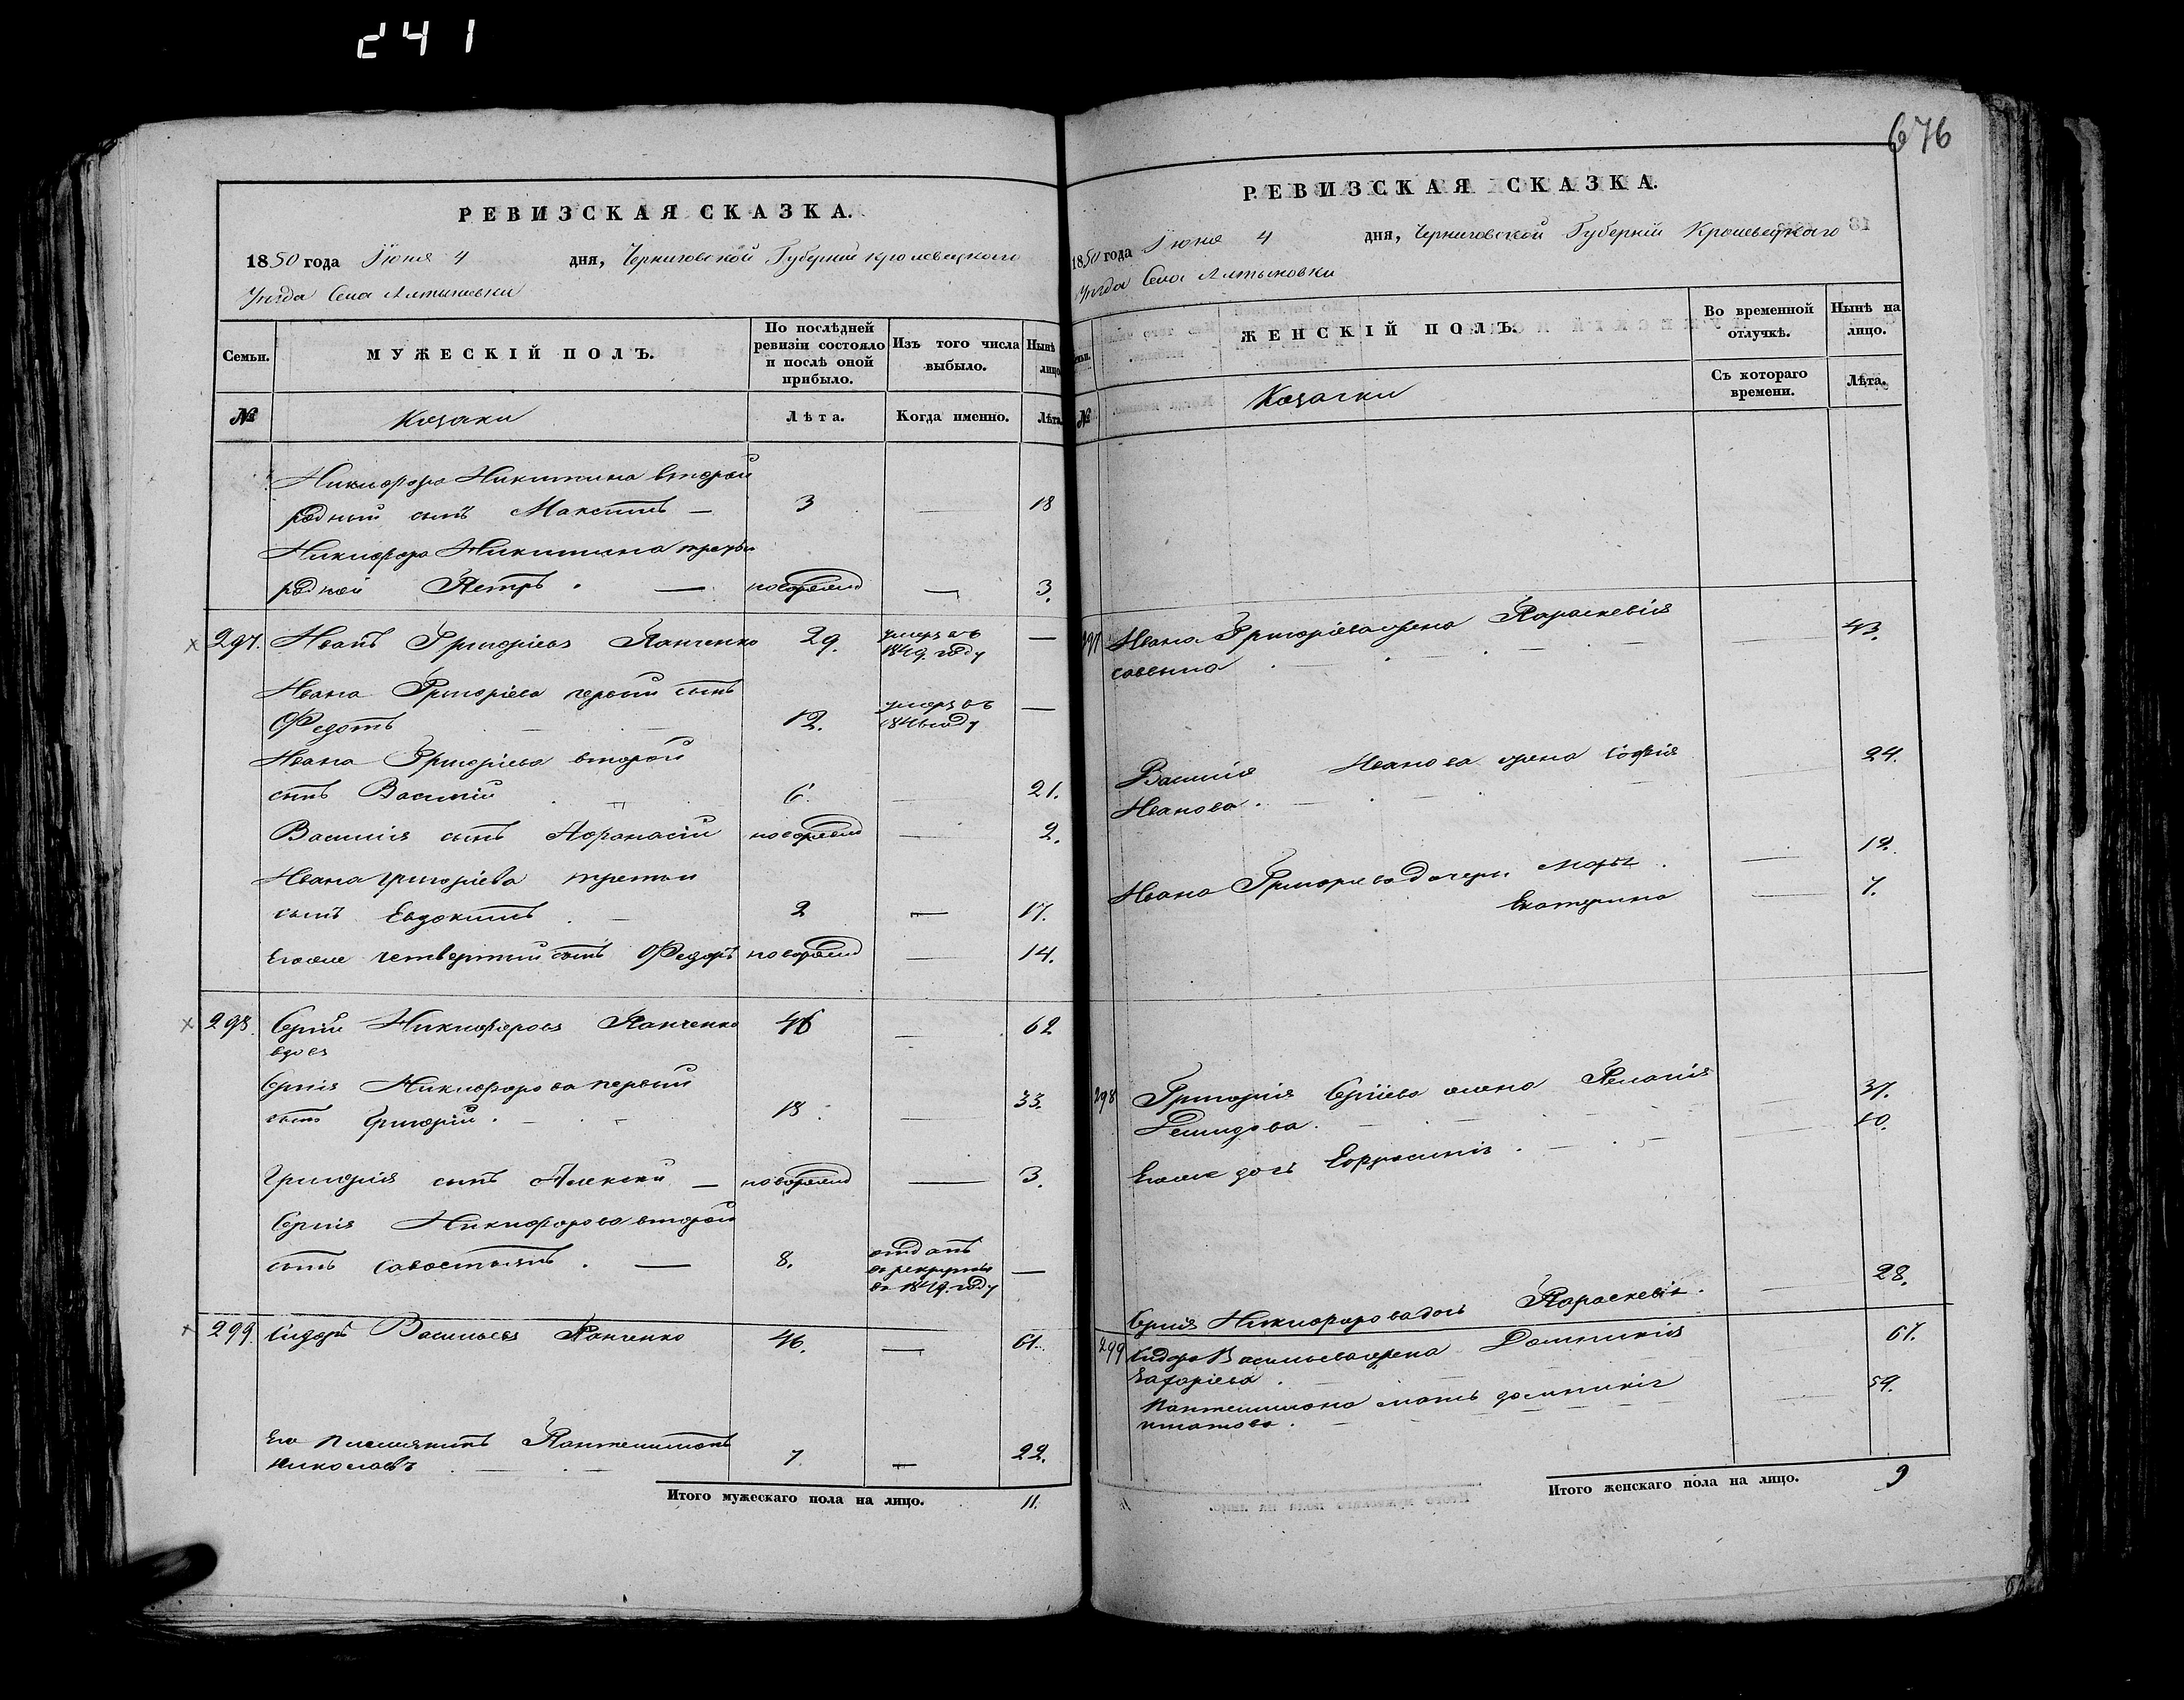 241
РЕВИЗСКАЯ СКАЗКА.
1850 года Июня 4 дня, Черниговской Губерніи Кролевецкаго
Уѣзда Села Алтыновки
Семьи.
МУЖЕСКІЙ ПОЛЪ.
По послѣдней ревизіи состояло и послѣ оной прибыло.
Изъ того числа выбыло.
Нынѣ лицо
№
Козаки
Лѣта.
Когда именно.
Лѣта.
Никифора Никитина второй
родный сынъ Максимъ — 3 — 18
Никифора Никитина третій
родной Петръ. — новорожд — 3.
297. Иванъ Григорьевъ Панченко 29. умеръ въ 1849 году —
Ивана Григоріева первый сынъ
Федотъ 12. умеръ въ 1846 году —
Ивана Григоріева второй
сынъ Василій 6. — 21.
Василія сынъ Афанасій новорожд — 2.
Ивана Григоріева третій
сынъ Евдокимъ. 2 — 17.
Егоже четвертый сынъ Федоръ новорожд — 14.
298. Сергій Никифоровъ Панченко 46 — 62
вдовъ
Сергія Никифорова первый
сынъ Григорій. 18 — 33.
Григорія сынъ Алексѣй — новорожд — 3.
Сергія Никифорова второй
сынъ Савостьянъ. — 8. отданъ въ рекруты въ 1849 году —
299. Сидоръ Васильевъ Панченко 46. — 61.
Его племянникъ Пантелимонъ
Николаевъ 7. — 22.
Итого мужескаго пола на лицо. 11.
676
РЕВИЗСКАЯ СКАЗКА.
1850 года Июня 4 дня, Черниговской Губерніи Кролевецкаго
Уѣзда Села Алтыновки
Семьи.
ЖЕНСКІЙ ПОЛЪ.
Во временной отлучкѣ.
Нынѣ на лицо.
№
Козачки
Съ котораго времени.
Лѣта.
297 Ивана Григоріева жена Параскевія
Саввина — 43.
Василія Иванова жена Софія
Иванова. — 24.
Ивана Григорьева дочери Марья. — 12.
Екатерина — 7.
298 Григорія Сергіева жена Пелагія
Демидова. — 37.
Егоже дочь Ефросинія. — 10.
Сергія Никифорова дочь Параскевія. — 28.
299 Сидора Васильева жена Домникія 67.
Захаріева.
Пантелимона мать Домникія — 59.
Игнатова.
Итого женскаго пола на лицо. 9